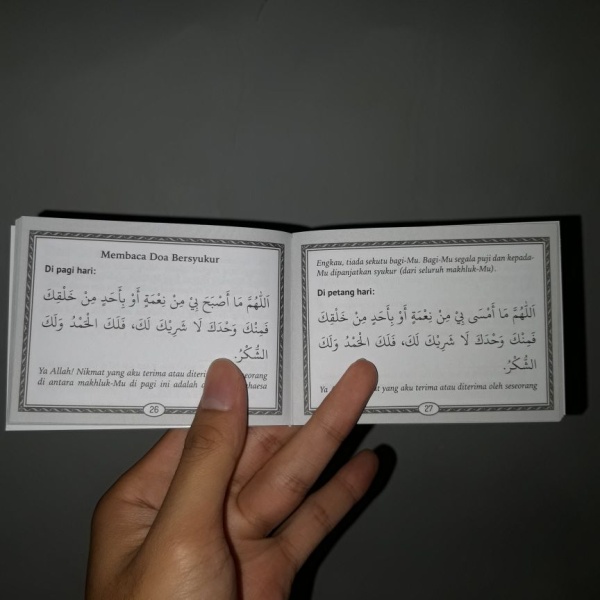 Membaca Doa Bersyukur
Di pagi hari:
اَللَّهُمَّ مَا أَصْبَحَ بِيْ مِنْ نِعْمَةٍ أَوْ بِأَحَدٍ مِنْ خَلْقِكَ
فَمِنْكَ وَحْدَكَ لَا شَرِيْكَ لَكَ، فَلَكَ الْحَمْدُ وَلَكَ
الشُّكْرُ.
Ya Allah! Nikmat yang aku terima atau diterima seseorang
di antara makhluk-Mu di pagi ini adalah
26
Engkau, tiada sekutu bagi-Mu. Bagi-Mu segala puji dan kepada-
Mu dipanjatkan syukur (dari seluruh makhluk-Mu).
Di petang hari:
اَللَّهُمَّ مَا أَمْسَى بِيْ مِنْ نِعْمَةٍ أَوْ بِأَحَدٍ مِنْ خَلْقِكَ
فَمِنْكَ وَحْدَكَ لَا شَرِيْكَ لَكَ، فَلَكَ الْحَمْدُ وَلَكَ
الشُّكْرُ.
Ya mat yang aku terima atau diterima oleh seseorang
27